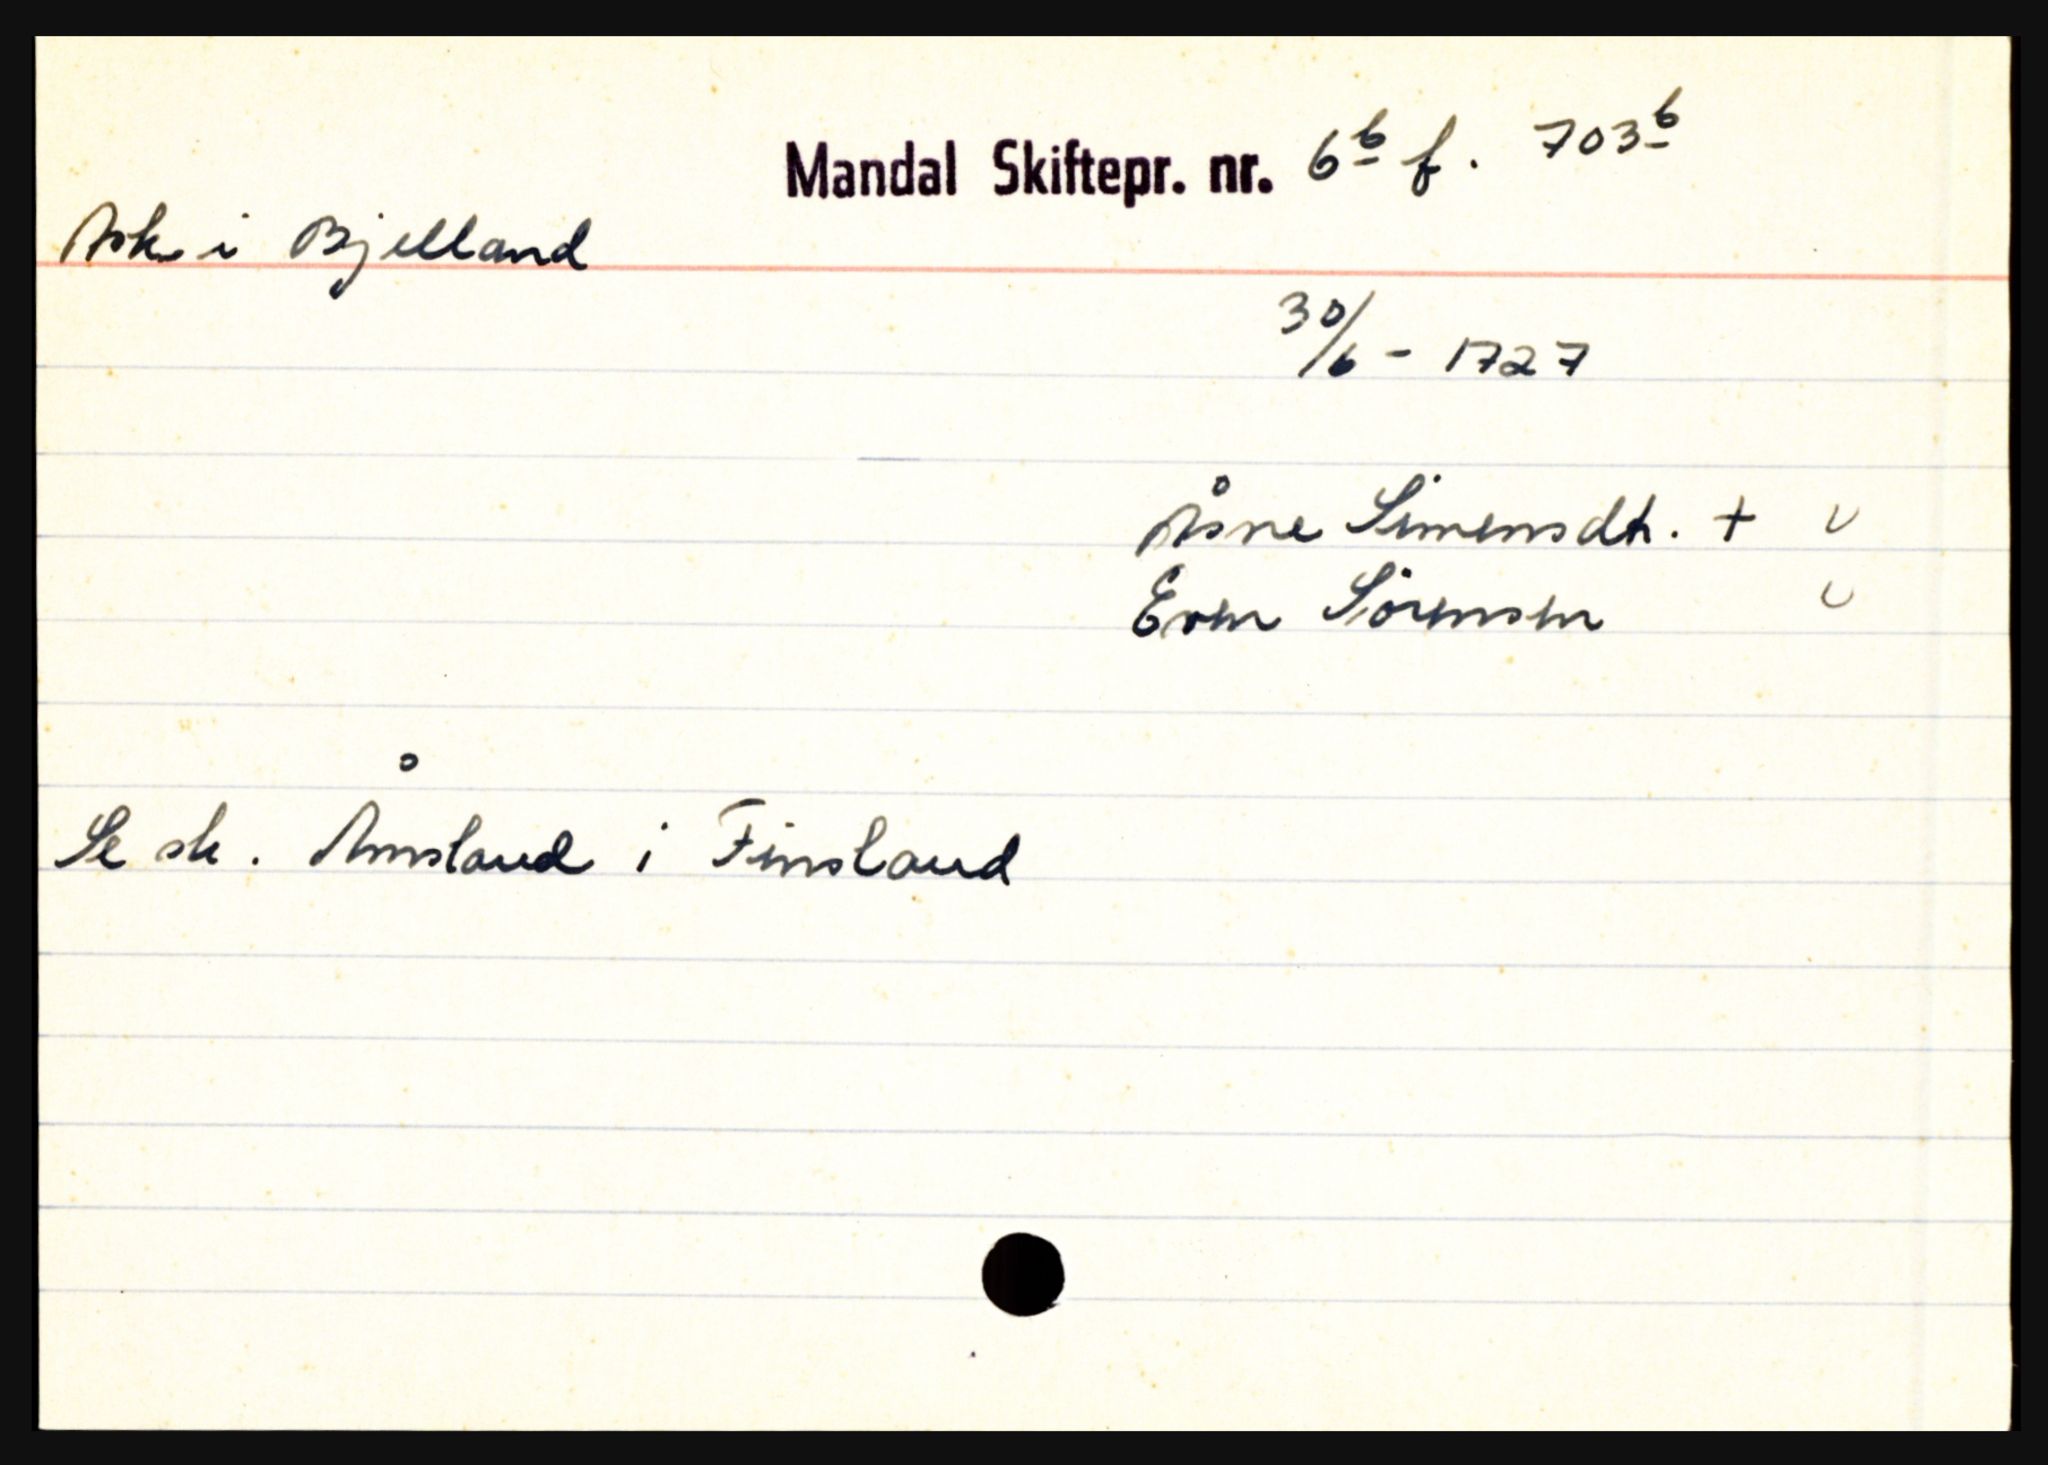 Mandal Skiftepr. nr. 6b f. 703b
Ask i Bjelland
30/6 - 1727
Åsne Simensdtr. + v
Even Sørensen v
Se sk. Åmsland i Finsland